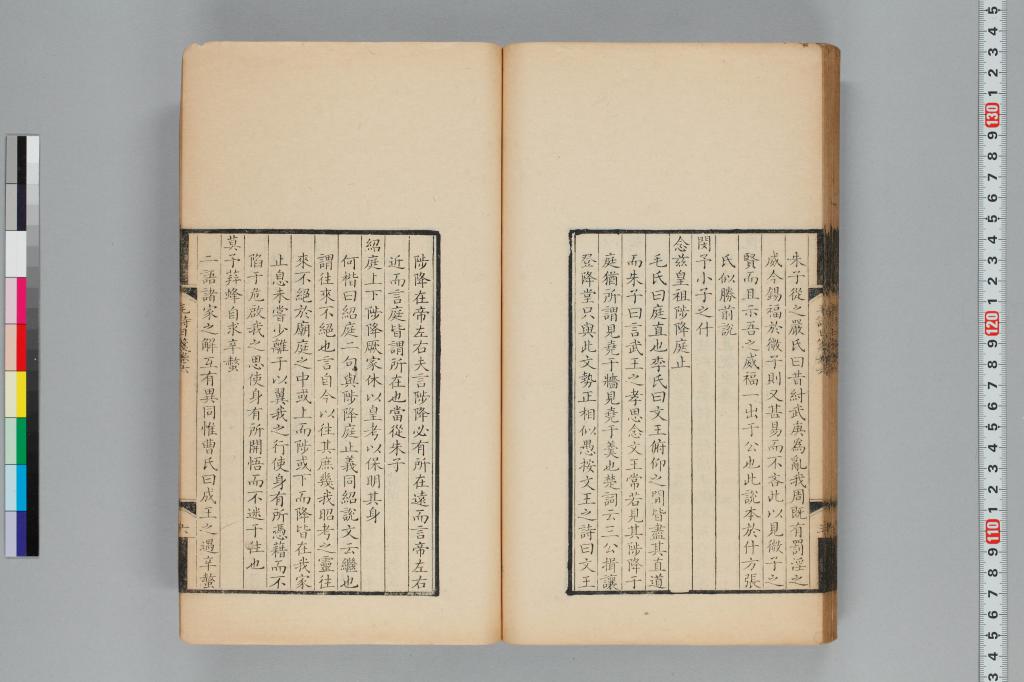 朱子從之嚴氏曰昔紂武庚為亂我周既有罰淫之
威今錫福於微子則又甚易而不吝此以見微子之
賢而且示吾之威福一出于公也此說本於什方張
氏似勝前說
閔予小子之什
念茲皇祖陟降庭止
毛氏曰庭直也李氏曰文王俯仰之間皆盡其直道
而朱子曰言武王之孝思念文王常若見其陟降于
庭猶所謂見堯于牆見堯于羹也楚詞云三公揖讓
登降堂只與此文勢正相似愚按文王之詩曰文王
陟降在帝左右夫言陟降必有所在遠而言帝左右
近而言庭皆謂所在也當從朱子
紹庭上下陟降厥家休以皇考以保明其身
何楷曰紹庭二句與陟降庭止義同紹說文云繼也
謂往來不絕也言自今以往其庶幾我昭考之靈往
來不絕於廟庭之中或上而陟或下而降皆在我家
止息未嘗少離于以翼我之行使身有所憑藉而不
陷于危啟我之思使身有所開悟而不迷于往也
莫予荓蜂自求辛螫
二語諸家之解互有異同惟曹氏曰成王之遇辛螫
毛詩日箋卷六
六